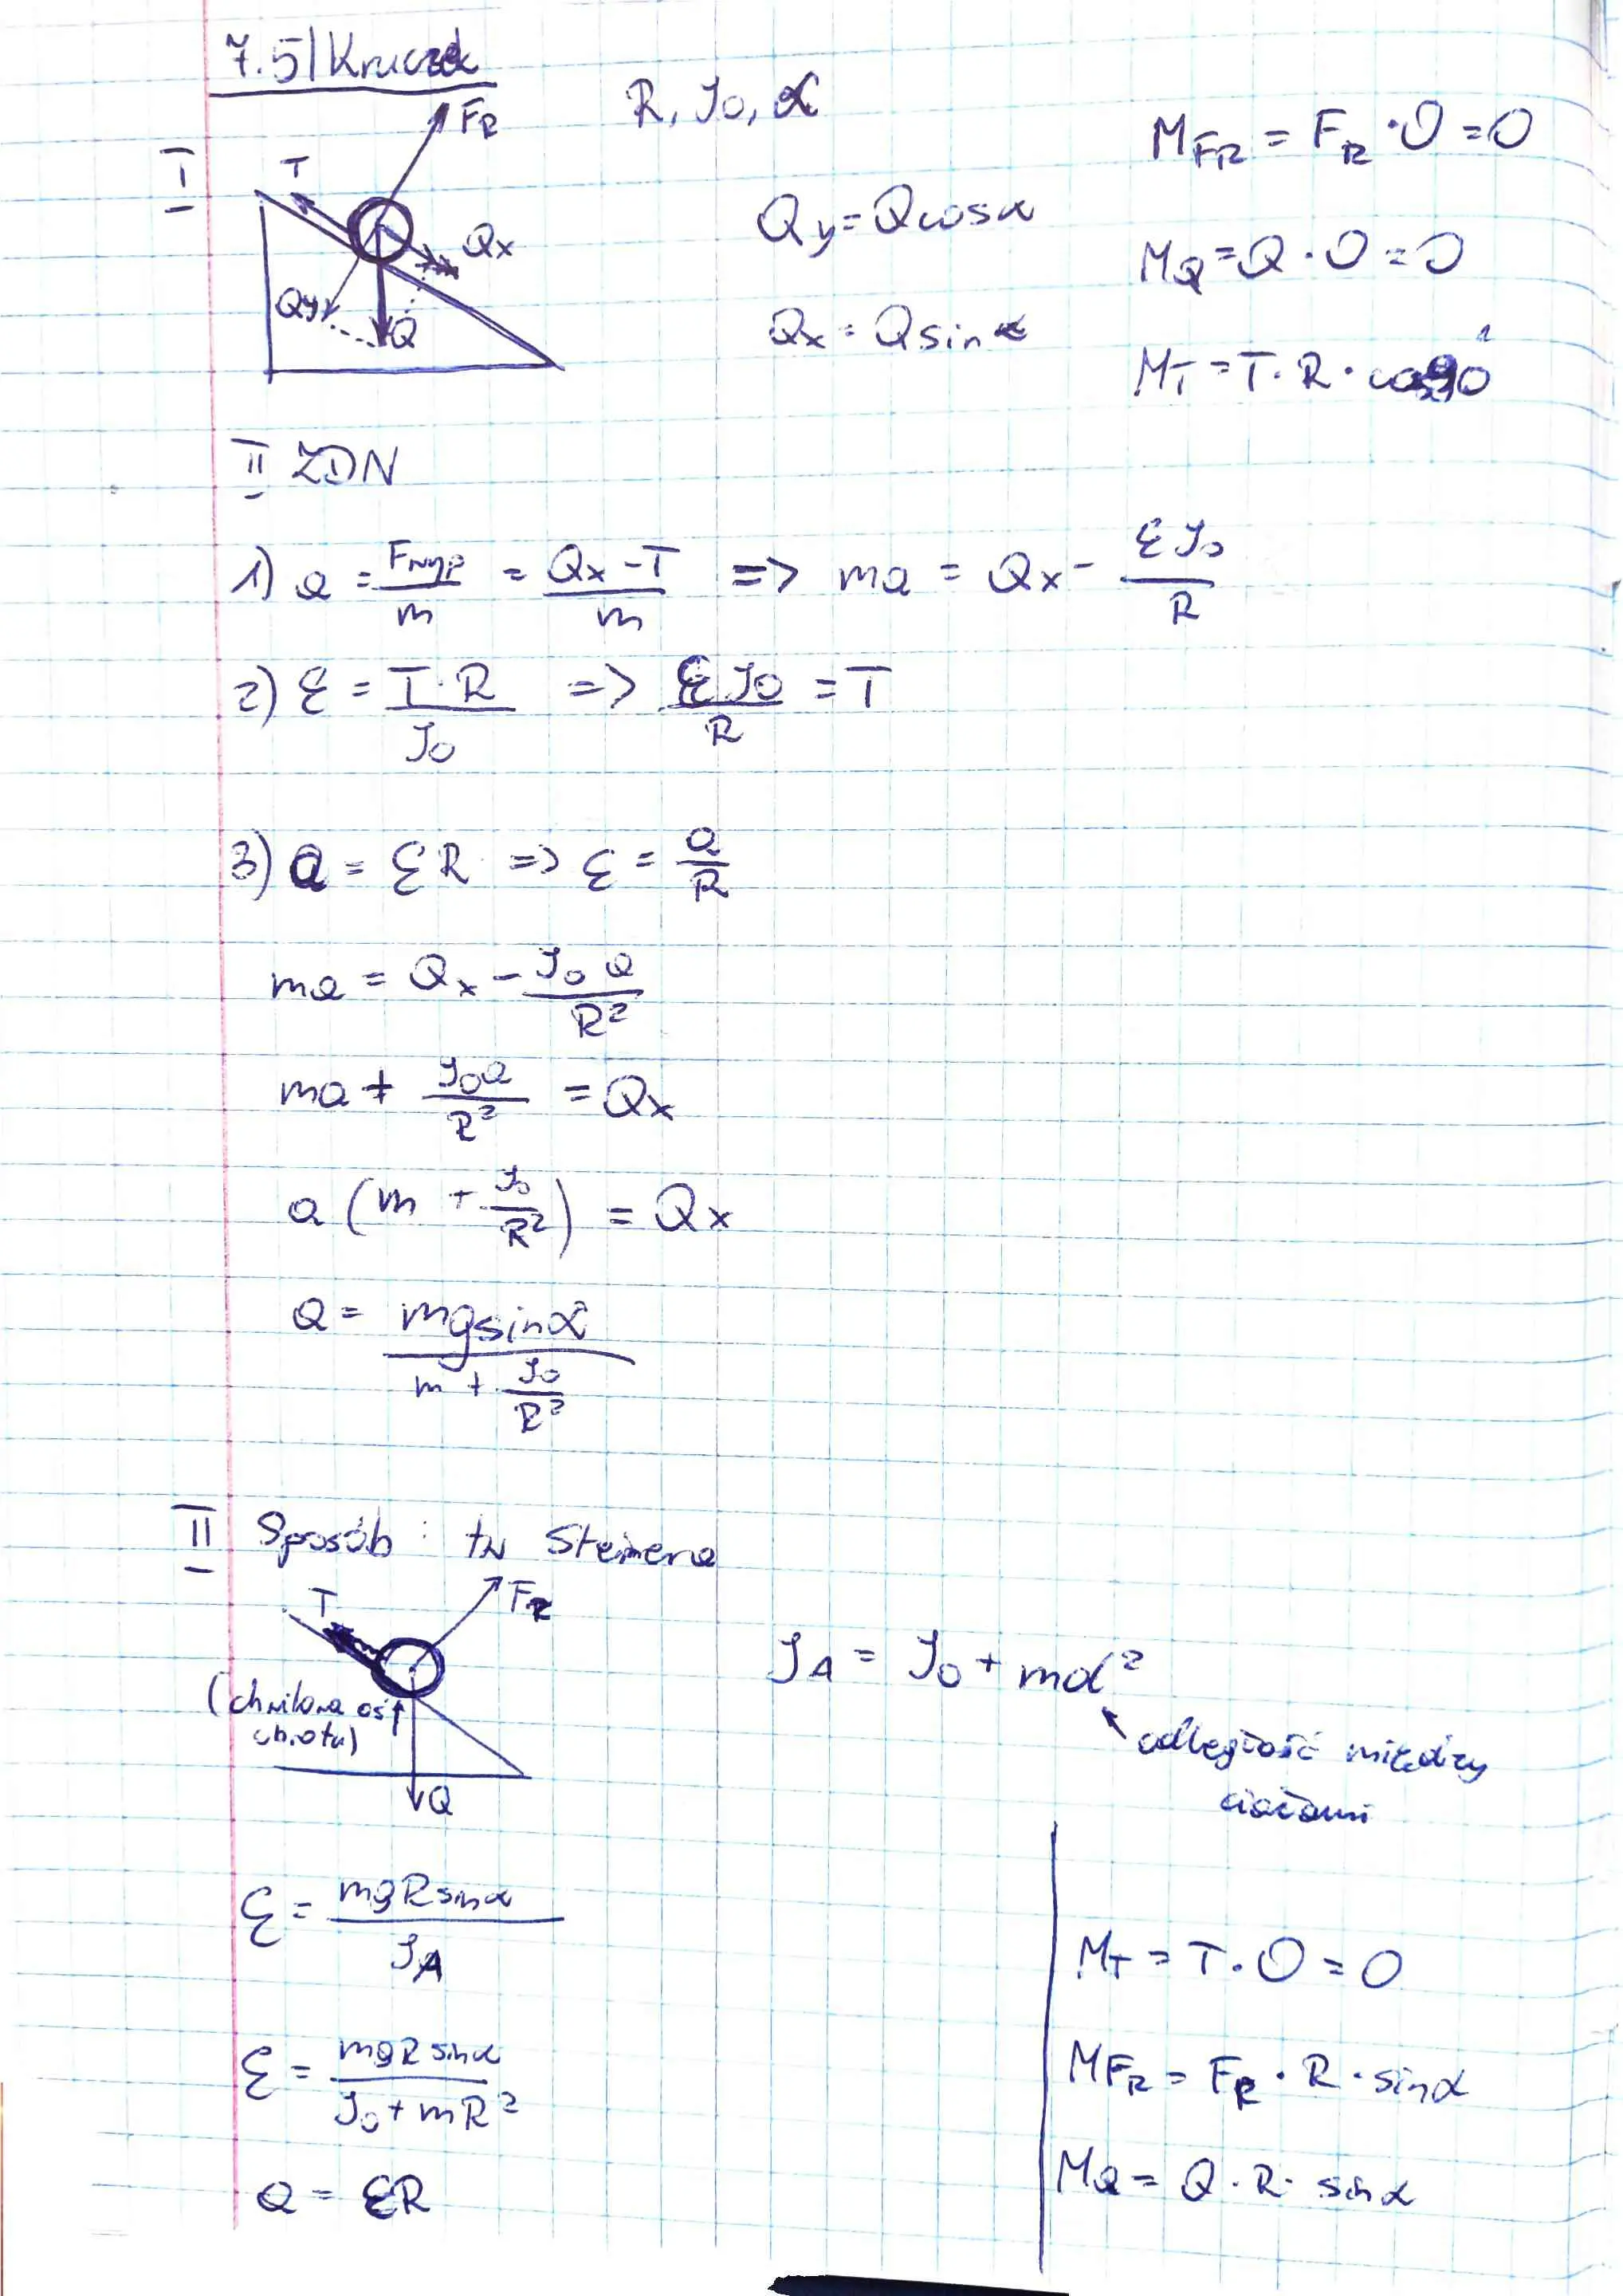 7.5|Kruczek
R, J₀, α
I
F_R
T
Qx
Qy
Q
Qy = Q cosα
Qx = Q sinα
M_FR = F_R · 0 = 0
M_Q = Q · 0 = 0
M_T = T · R ·
II ZDN
1) a = Fwyp/m = (Qx - T)/m => ma = Qx - εJ₀/R
2) ε = T·R/J₀ => εJ₀/R = T
3) a = εR => ε = a/R
ma = Qx - J₀a/R²
ma + J₀a/R² = Qx
a (m + J₀/R²) = Qx
a = mgsinα/(m + J₀/R²)
II Sposób : tw Steinera
T
F_R
(chwilowa oś
obrotu)
Q
J_A = J₀ + md²
odległość między
osiami
ε = mgRsinα/J_A
ε = mgRsinα/(J₀ + mR²)
a = εR
M_T = T · 0 = 0
M_FR = F_R · R · sinα
M_Q = Q · R · sinα